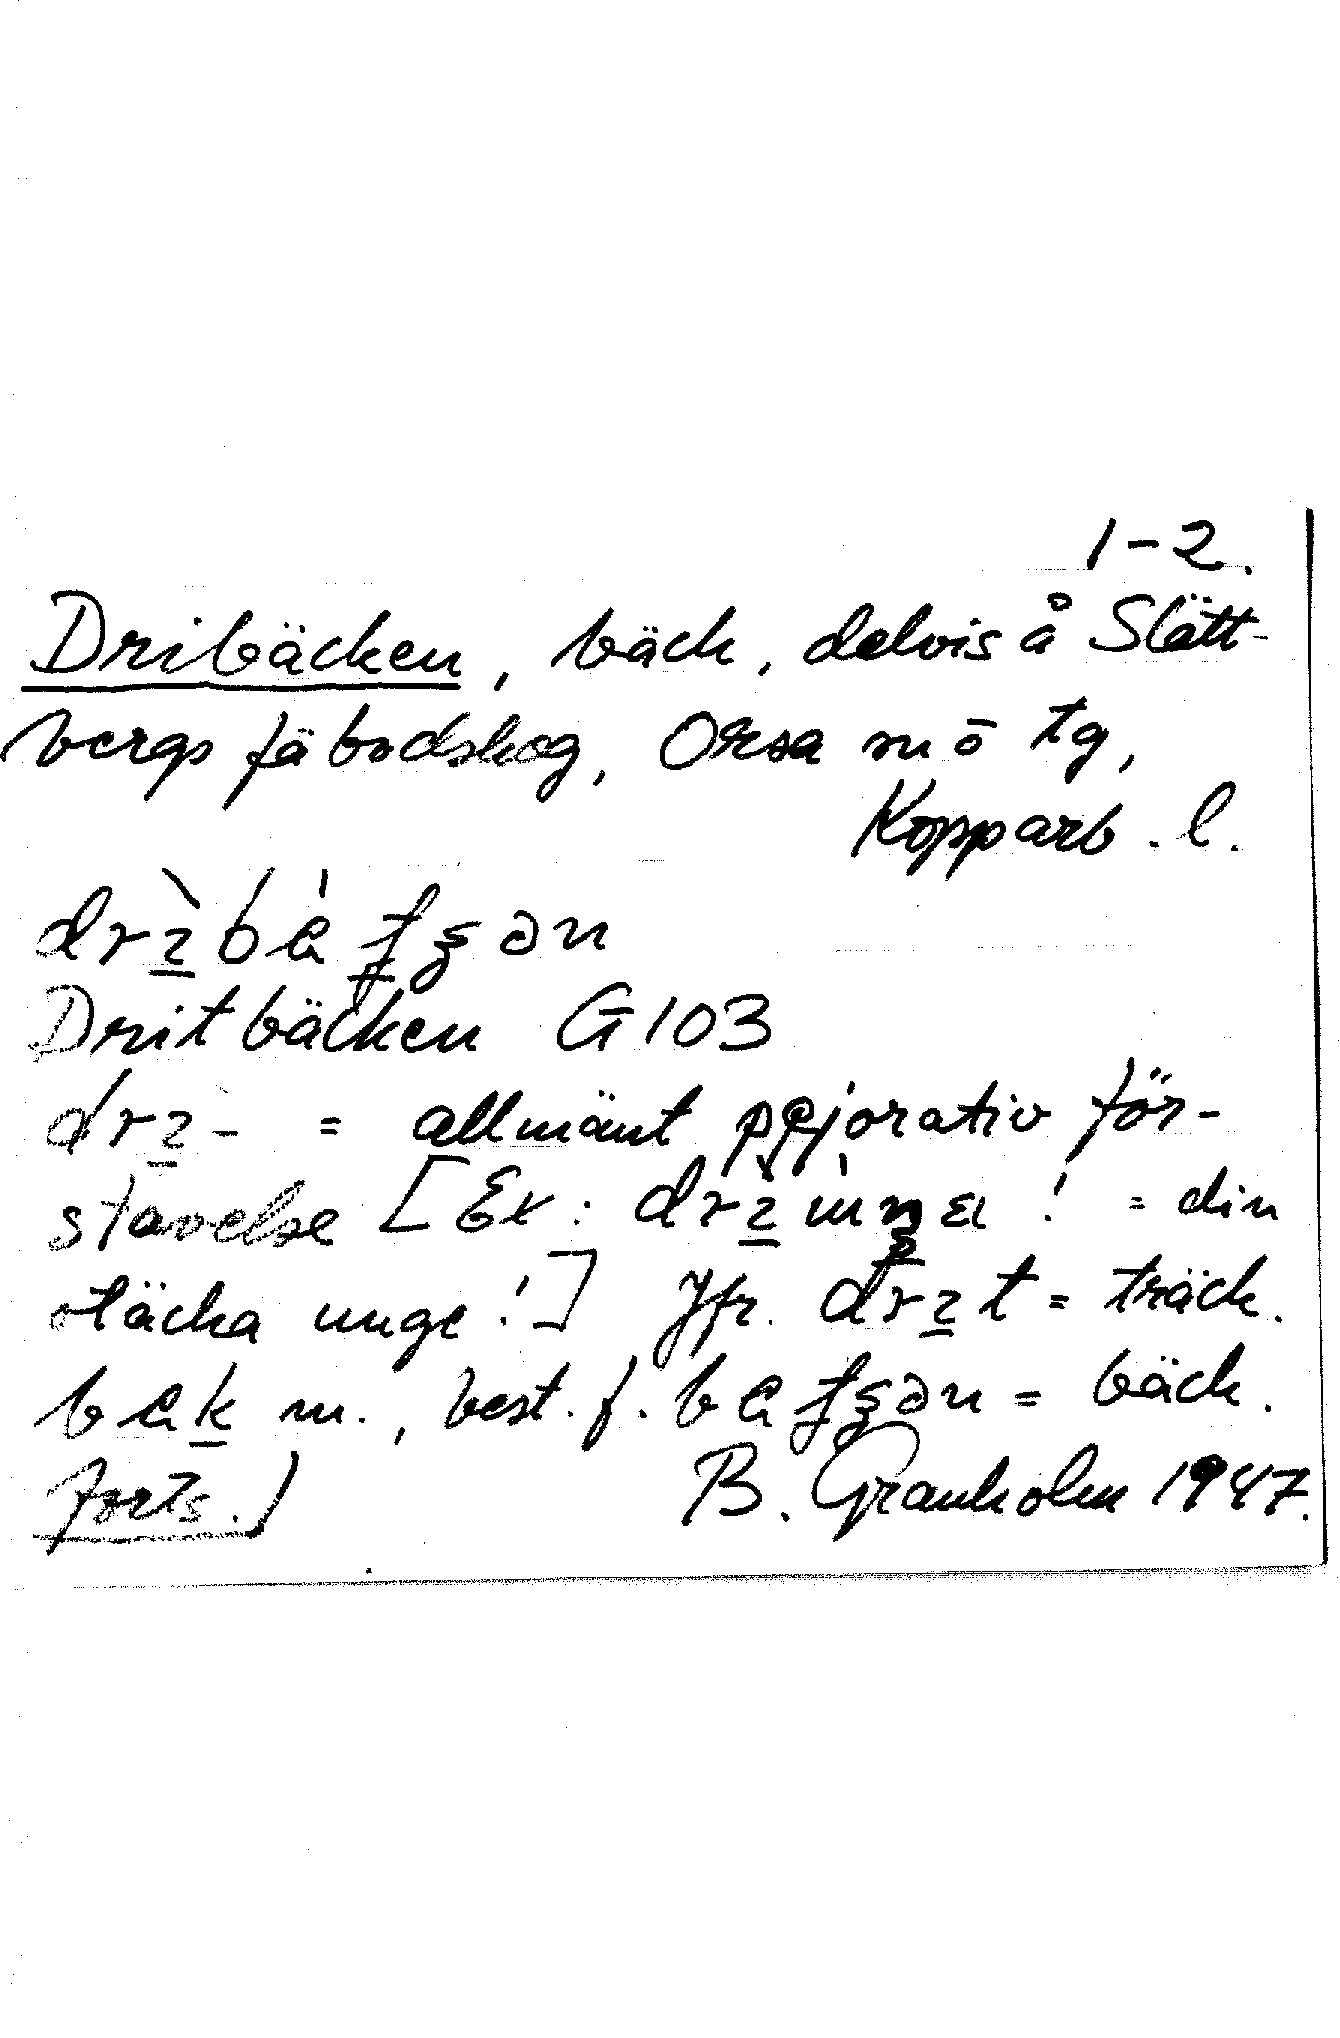 1-2.
Dribäcken, bäck, delvis å Slätt-
bergs fäbodskog, Orsa mō tg,
Kopparb. l.
Dritbäcken G103
= allmänt pejorativ för-
stavelse [Ex: ! = din
otäcka unge!] Jfr. = träck.
m., best. f. = bäck.
Forts.) B. Granholm 1947.